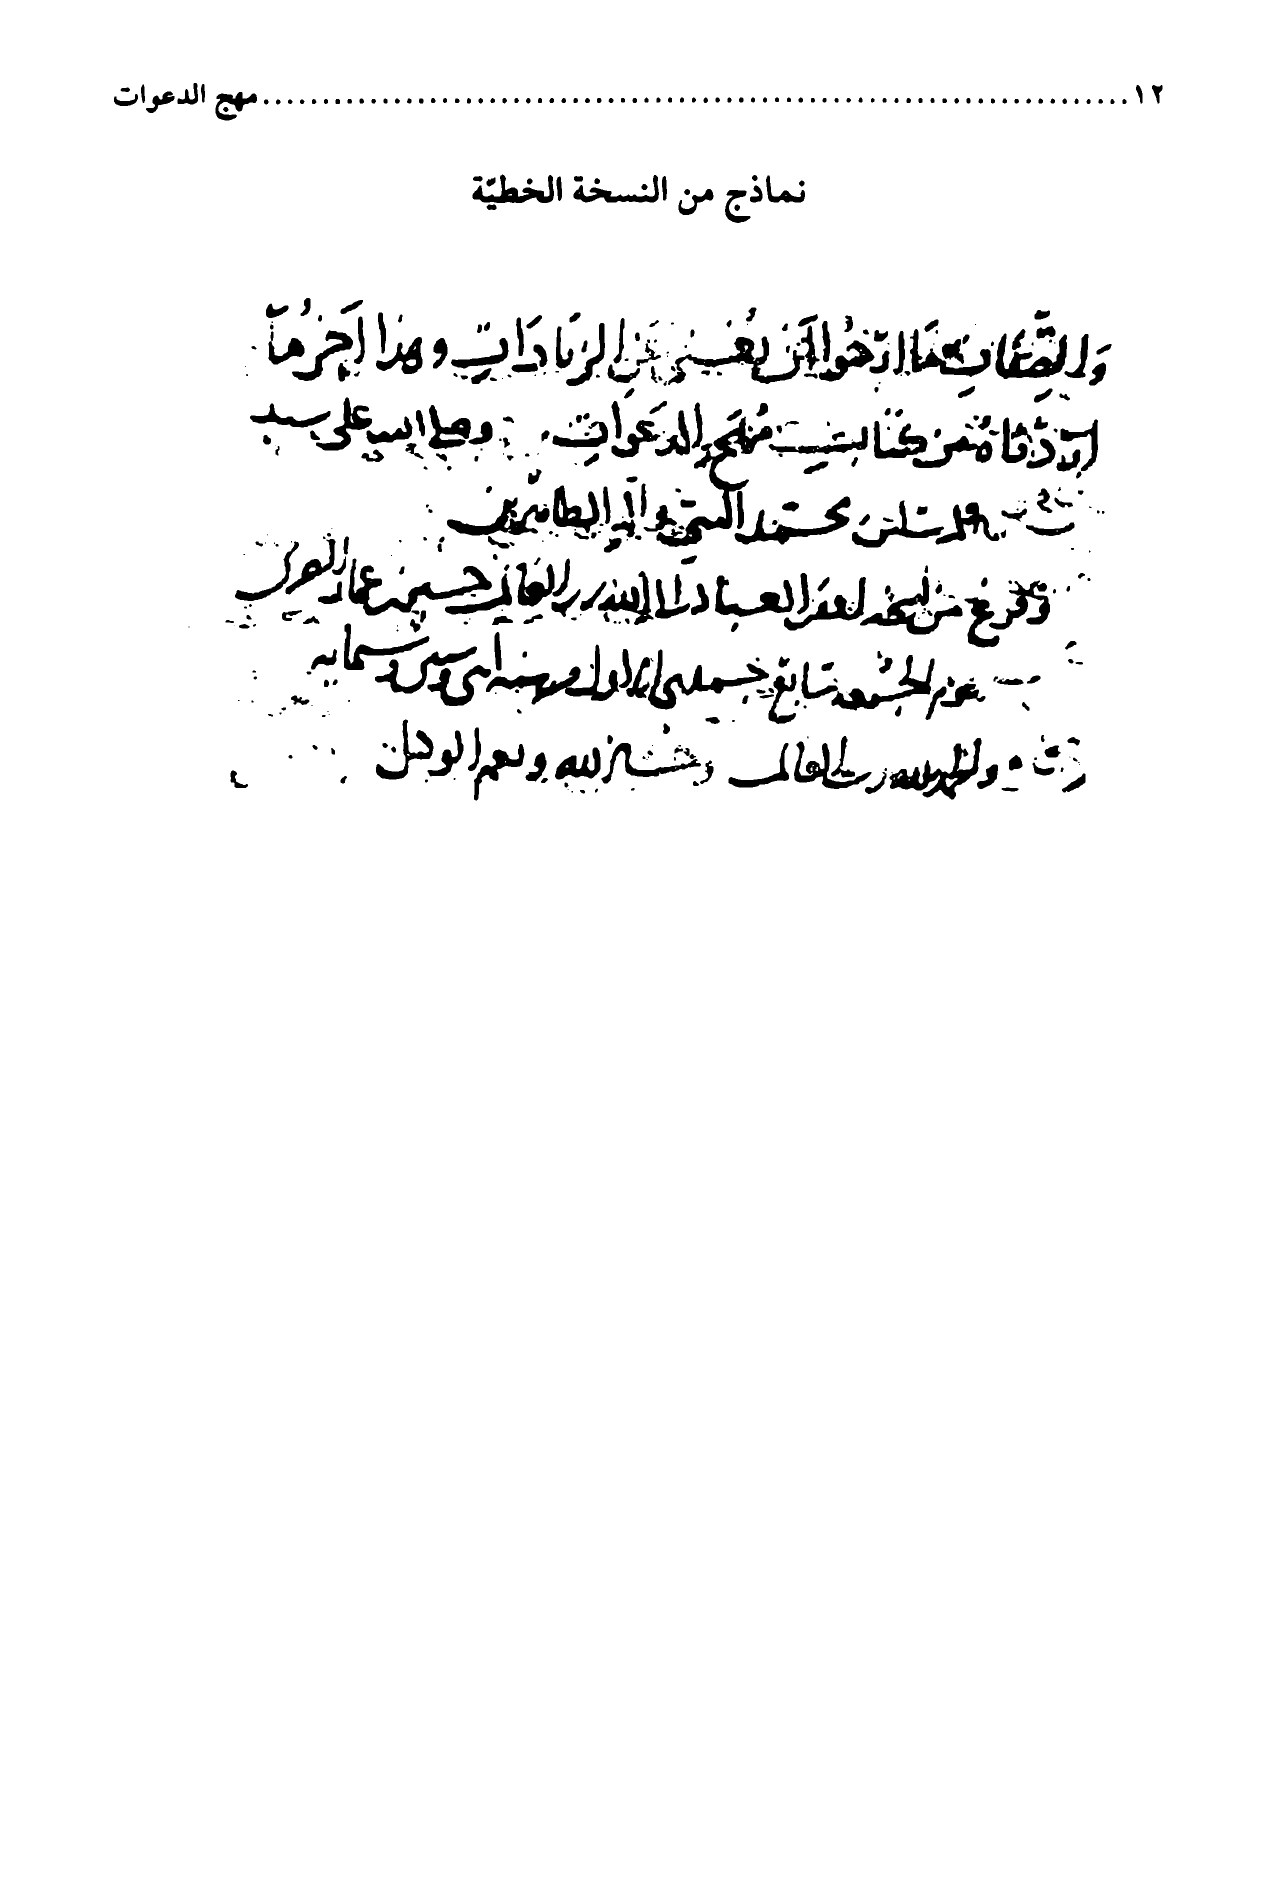 ١٢ ........ مهج الدعوات
نماذج من النسخة الخطيّة
وَالصِّفَاتِ مَا ارجُوا أَن يُغني عَنِ الزِيَادَاتِ وهذا آخِرُ مَا
أردْنَاهُ من كتاب مُهَج الدعَوَاتِ وصلى الله على سيد
المرسلين محمد النبي وآله الطاهرين
وفرغ من نسخه افقر العباد الى الله رب العالمين حسين بن عمار
يوم الجُمعه سَابع جمادى الاول سنه وستمايه
والحمد لله رب العالمين وحسبنا الله ونعم الوكيل